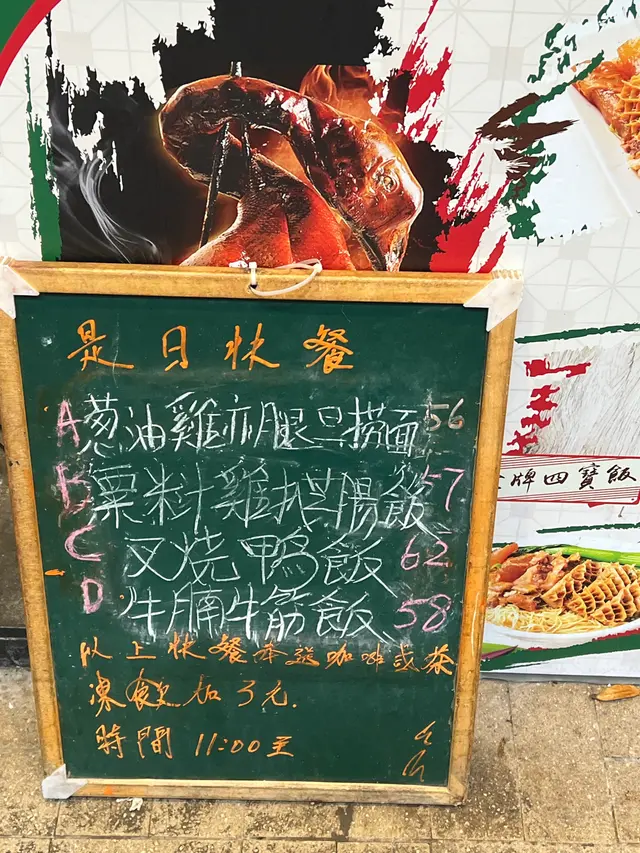 是日快餐
A葱油雞亦腿旦捞面 56
B粟米汁雞扒腸飯 57
C 叉烧鴨飯 62
D 牛腩牛筋飯 58
以上快餐奉送咖啡或茶
凍飲加3元.
時間 11:00至
牌四寶飯